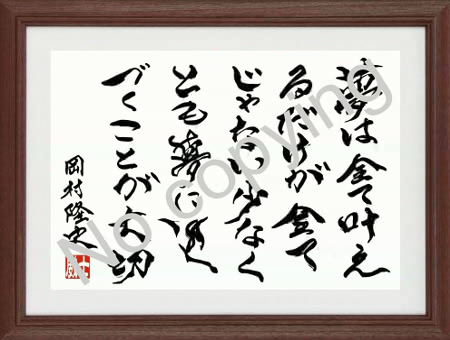 夢は全て叶え
るだけが全て
じゃない少なく
とも夢に近
づくことが大切
岡村隆史
No copying